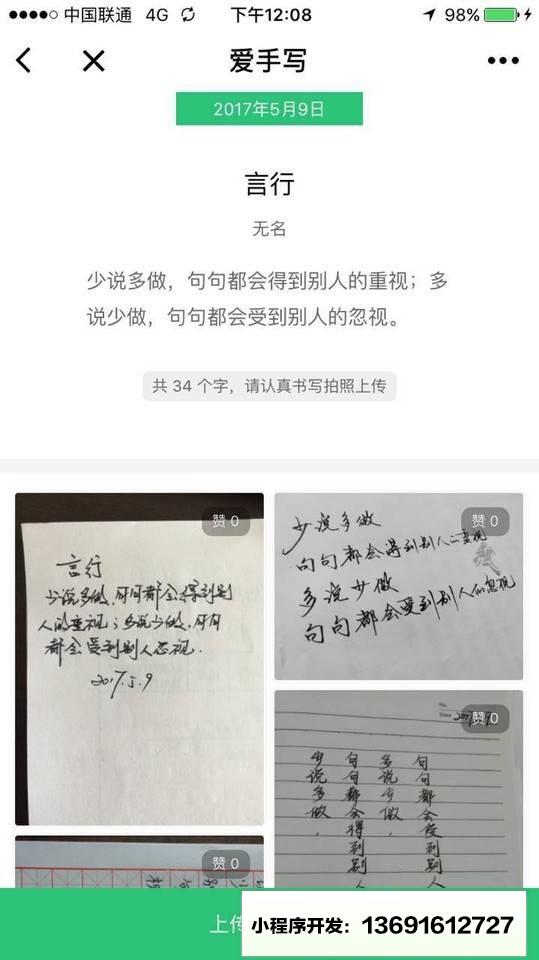 中国联通 4G 下午12:08 98%
爱手写
2017年5月9日
言行
无名
少说多做，句句都会得到别人的重视；多
说少做，句句都会受到别人的忽视。
共 34 个字，请认真书写拍照上传
赞 0
言行
少说多做，句句都会得到别
人的重视；多说少做，句句
都会受到别人忽视．
2017.5.9
赞 0
少说多做
句句都会得到别人的重视
多说少做
句句都会受到别人的忽视
赞 0
少说多做，
句句都会得到别人
多说少做，
句句都会受到别人
赞 0
上传
小程序开发：13691612727